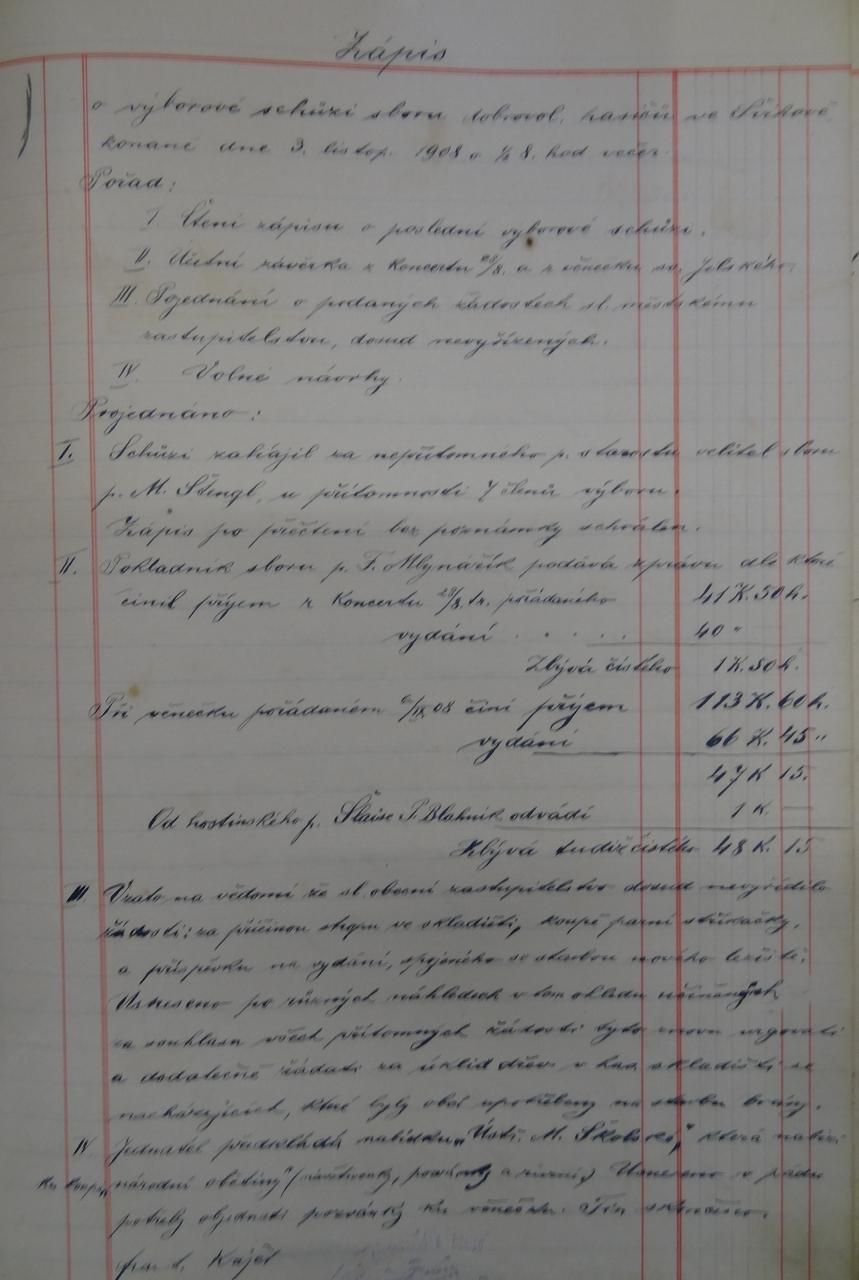 Zápis
o výborové schůzi sboru dobrovol. hasičů ve
konané dne 3. listop. 1908 o ½ 8. hod večer.
Pořad:
I. Čtení zápisu o poslední výborové schůzi.
II. Účetní závěrka z Koncertu 28/8. a z věnečku sv.
III. Pojednání o podaných žádostech sl. městskému
zastupitelstvu, dosud nevyřízených.
IV. Volné návrhy.
Projednáno:
I. Schůzi zahájil za nepřítomného p. starostu velitel sboru
p. M. Štengl, u přítomnosti 7 členů výboru.
Zápis po přečtení bez poznámky schválen.
II. Pokladník sboru p. F. Mlynářík podává zprávu dle které
činil příjem z Koncertu 28/8. t.r. pořádaného 41 K. 50 h.
vydání . . . . . 40 "
Zbývá čistého 1 K. 50 h.
Při věnečku pořádaném /IX 08 činí příjem 113 K. 60 h.
vydání 66 K. 45 "
47 K 15.
Od hostinského p. P. Blahník odvádí 1 K. —
Zbývá tudíž čistého 48 K. 15
III. Vzato na vědomí že sl. obecní zastupitelstvo dosud nevyřídilo
žádosti: za příčinou stropu ve skladišti, koupě parní stříkačky,
a příspěvku na vydání, spojeného se stavbou nového leziště.
Usneseno po různých náhledech v tom ohledu učiněných
za souhlasu všech přítomných žádosti tyto znovu urgovati
a dodatečně žádati za úklid dřev v has. skladišti se
nacházejících, které byly obcí upotřebeny na stavbu brány.
IV. Jednatel předkládá nabídku „Ústř. M. Školské," která nabízí
ku koupi „národní obětiny" (návštěvenky, pozvánky a ) Usneseno v pádu
potřeby objednati pozvánky ku věnečku. Tím skončeno.
Kajet